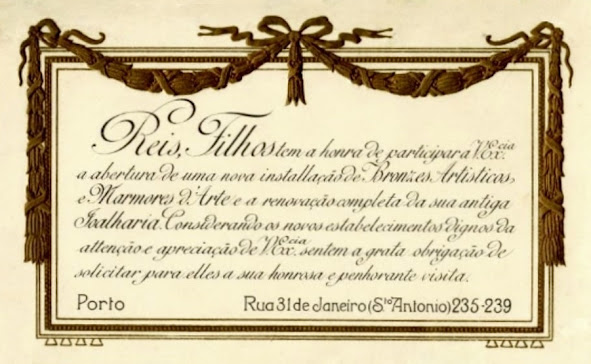 Reis, Filhos tem a honra de participar a V. Ex.cia
a abertura de uma nova installação de Bronzes Artisticos,
e Marmores d'Arte e a renovação completa da sua antiga
Joalharia. Considerando os novos estabelecimentos dignos da
attenção e apreciação de V. Ex.cia sentem a grata obrigação de
solicitar para elles a sua honrosa e penhorante visita.
Porto Rua 31 de Janeiro (Sto Antonio) 235-239